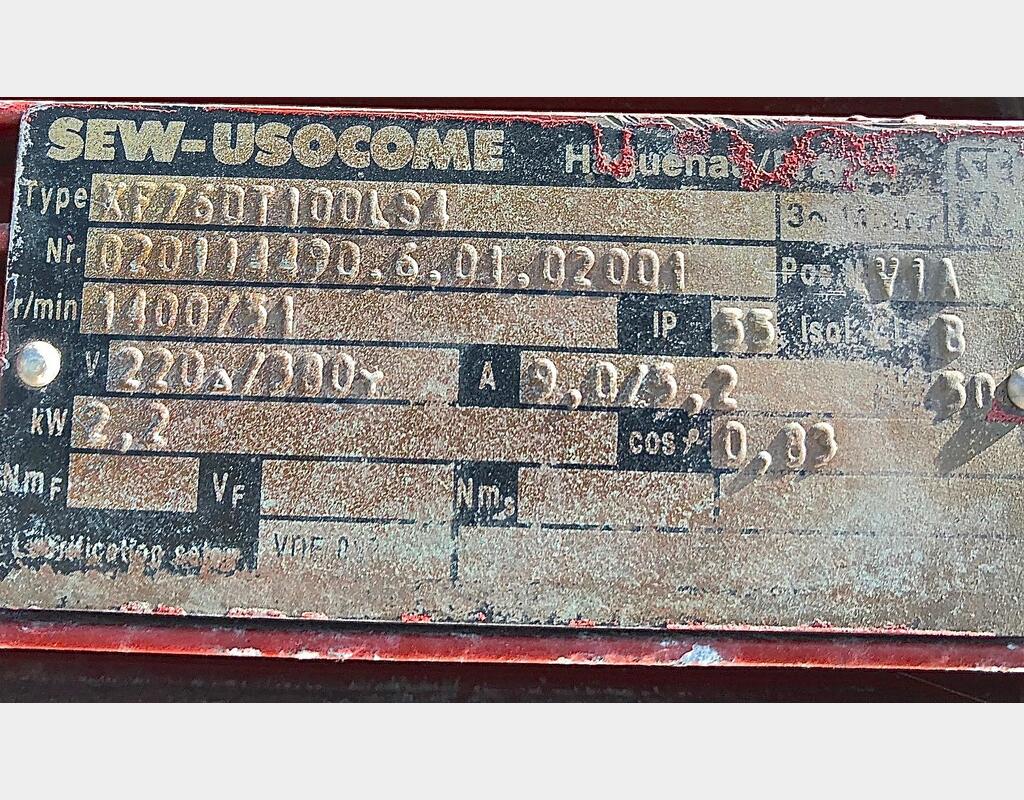 SEW-USOCOME Haguenau
Type KF76DT100LS4 3∼
Nr. 020114490.6.01.02001 Pos. V1A
r/min 1400/31 IP Isol. Cl. B
V 220△/380Y A 9,0/5,2 50
kW 2,2 cosφ 0,83
NmF VF Nms
Lubrification selon VDE